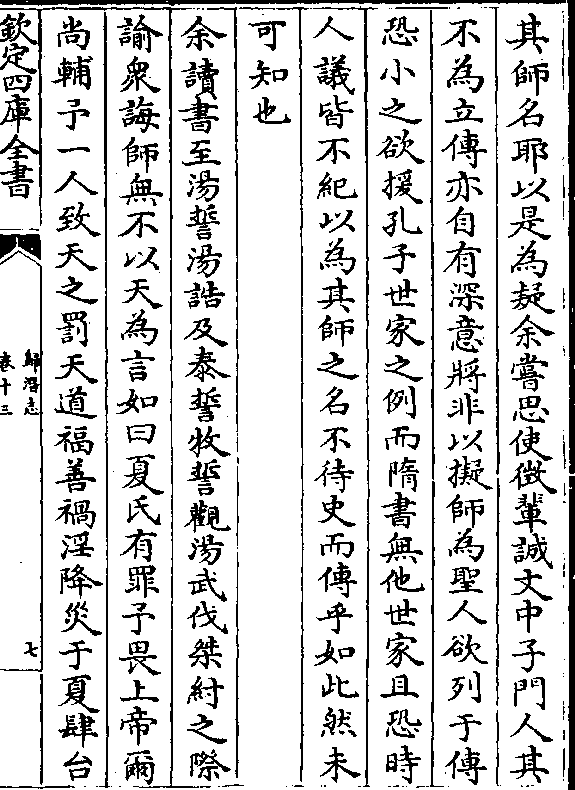 其師名耶以是為疑余嘗思使徴輩誠文中子門人其
不為立傳亦自有深意將非以擬師為聖人欲列于傳
恐小之欲援孔子世家之例而隋書無他世家且恐時
人議皆不紀以為其師之名不待史而傳乎如此然未
可知也
余讀書至湯誓湯誥及泰誓牧誓觀湯武伐桀紂之際
諭衆誨師無不以天為言如曰夏氏有罪予畏上帝爾
尚輔予一人致天之罰天道福善禍淫降災于夏肆台
欽定四庫全書
歸潛志
卷十三
七